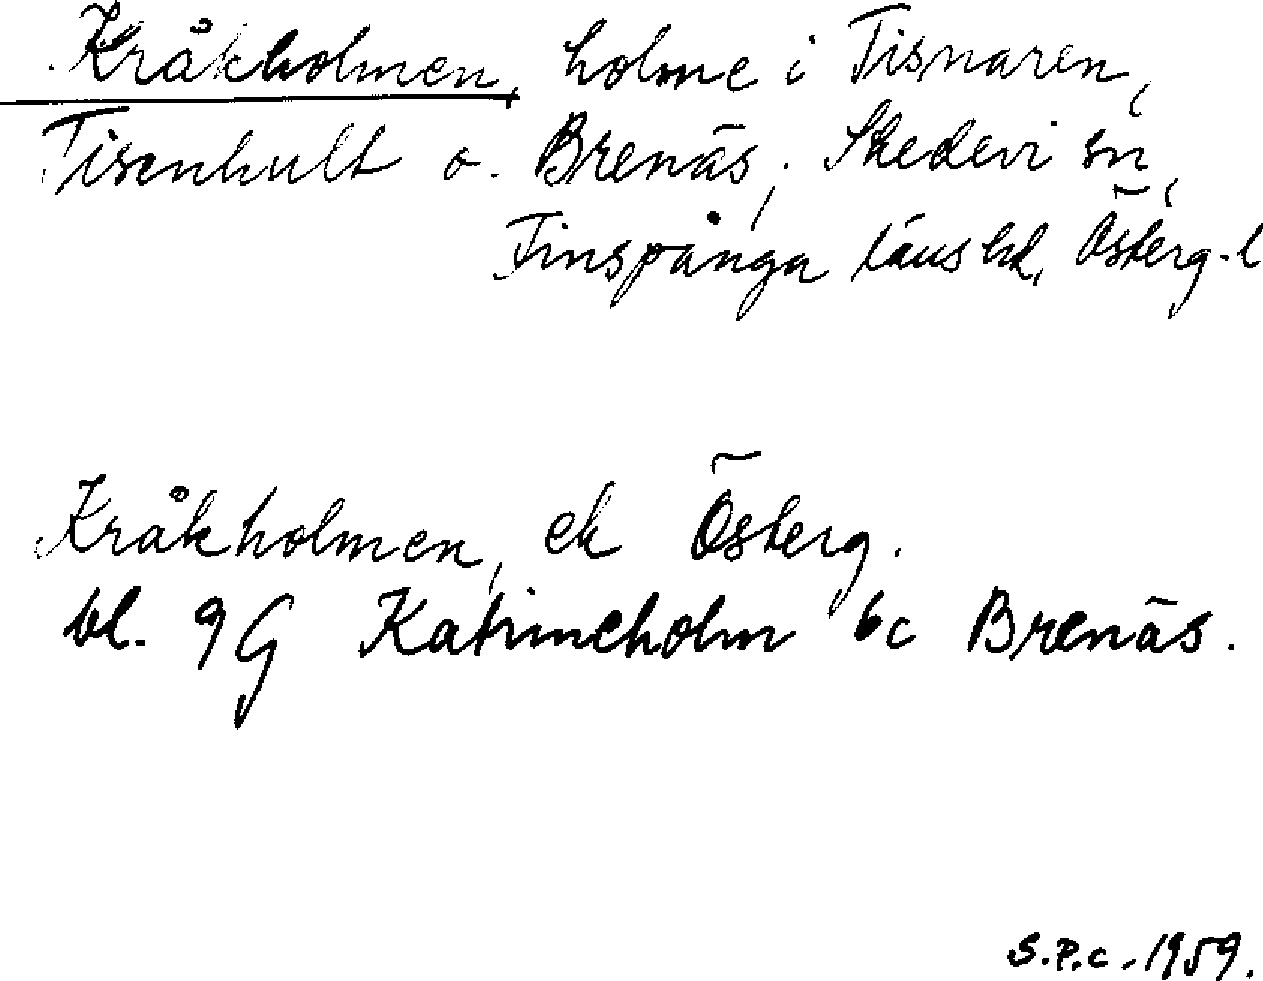 Kråkholmen, holme i Tisnaren,
Tisenhult o. Brenäs, Skedevi sn,
Finspånga läns hd, Österg. l
Kråkholmen, ek Österg.
bl. 9G Katrineholm 6c Brenäs.
S.P.C. 1959.